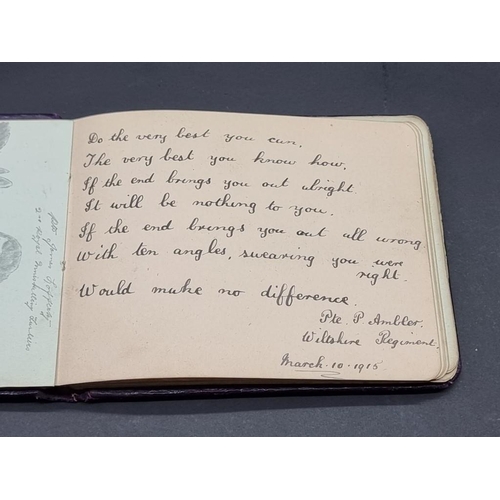 Do the very best you can,
The very best you know how,
If the end brings you out alright
It will be nothing to you.
If the end brings you out all wrong
With ten angles, swearing you were
right.
Would make no difference.
Pte. P Ambler.
Wiltshire Regiment.
March. 10. 1915